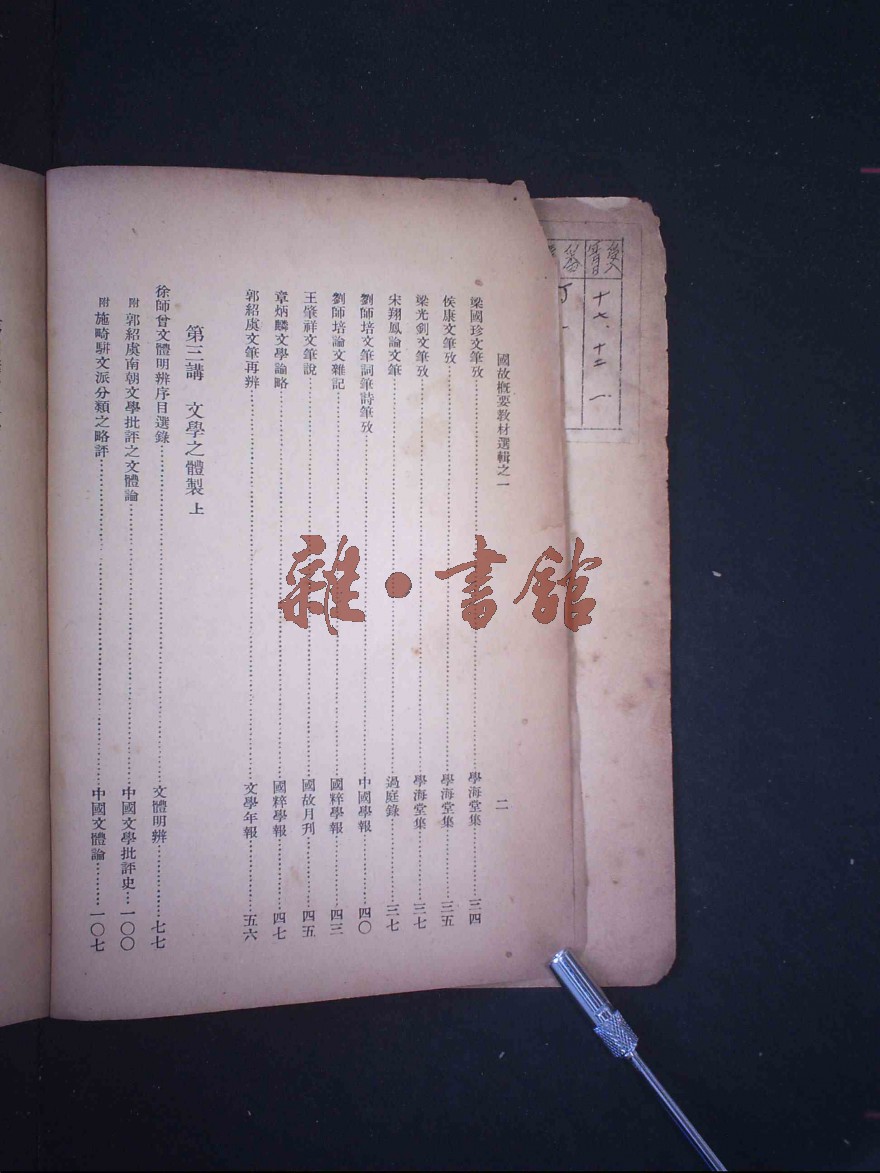 國故概要教材選輯之一
二
梁國珍文筆攷……學海堂集……三四
侯康文筆攷……學海堂集……三五
梁光釗文筆攷……學海堂集……三七
宋翔鳳論文筆……過庭錄……三七
劉師培文筆詞筆詩筆攷……中國學報……四〇
劉師培論文雜記……國粹學報……四三
王肇祥文筆說……國故月刊……四五
章炳麟文學論略……國粹學報……四七
郭紹虞文筆再辨……文學年報……五六
第三講 文學之體製 上
徐師曾文體明辨序目選錄……文體明辨……七七
附 郭紹虞南朝文學批評之文體論……中國文學批評史……一〇〇
附 施畸駢文派分類之略評……中國文體論……一〇七
雜·書館
十七、十二、一